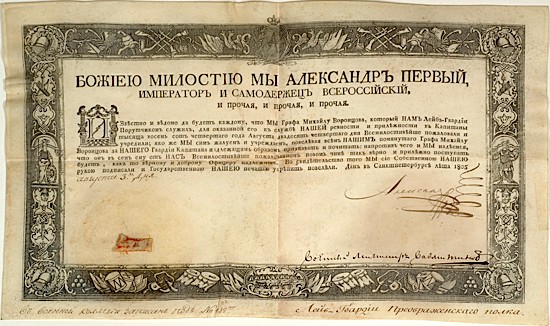 БОЖІЕЮ МИЛОСТІЮ МЫ АЛЕКСАНДРЪ ПЕРВЫЙ,
ИМПЕРАТОРЪ И САМОДЕРЖЕЦЪ ВСЕРОССІЙСКІЙ,
и прочая, и прочая, и прочая.
Извѣстно и вѣдомо да будетъ каждому, что МЫ Графа Михайлу Воронцова, который НАМЪ Лейбъ-Гвардіи
Порутчикомъ служилъ, для оказанной его къ службѣ НАШЕЙ ревности и прилѣжности въ Капитаны
тысяча восемь сотъ четвертаго года Августа двадцать четвертаго дня Всемилостивѣйше пожаловали и
учредили; яко же МЫ симъ жалуемъ и учреждаемъ, повелѣвая всѣмъ НАШИМЪ помянутаго Графа Михайлу
Воронцова за НАШЕГО Гвардіи Капитана надлежащимъ образомъ признавать и почитать; напротивъ чего и МЫ надѣемся,
что онъ въ семъ ему отъ НАСЪ Всемилостивѣйше пожалованномъ новомъ чинѣ такъ вѣрно и прилѣжно поступать
будетъ, какъ то вѣрному и доброму Офицеру надлежитъ. Во свидѣтельство того МЫ сіе Собственною НАШЕЮ
рукою подписали и Государственною НАШЕЮ печатью укрѣпить повелѣли. Данъ въ Санктпетербургѣ Лѣта 1805
Августа 3 дня
Александръ
Лейб Гвардіи Преображенскаго полка.